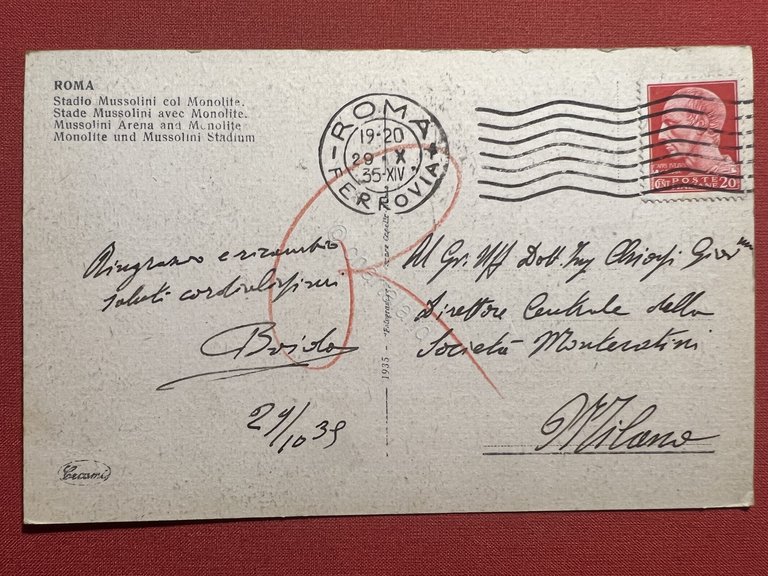 ROMA
Stadio Mussolini col Monolite.
Stade Mussolini avec Monolite.
Mussolini Arena and Monolite
Monolite und Mussolini Stadium
ROMA
19-20
29 X
35-XIV
FERROVIA
POSTE
ITALIANE
CENT 20
Ringrazio e ricambio
saluti cordialissimi
29/10 35
R
1935 -
Al Gr. Uff Dott. Ing
Direttore Centrale della
Società Montecatini
Milano